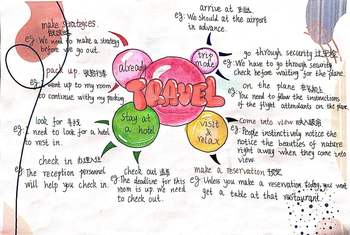 make strategies
eg: We need to make a strategy
before we go out.
pack up
eg: I went up to my room
to continue with my packing
look for 寻找
eg: I need to look for a hotel
to rest in.
check in
eg: The reception personnel
will help you check in.
check out
eg: The deadline for this
room is up. We need
to check out.
already
trip mode
TRAVEL
stay at a hotel
visit & relax
arrive at 到达
eg: We should at the airport
in advance.
go through security 过安检
eg: We have to go through security
check before waiting for the plane.
on the plane
eg: You need to follow the instructions
of the flight attendants on the plane.
Come into view 映入眼帘
eg: People instinctively notice the
notice the beauties of nature
right away when they come into
view.
make a reservation
eg: Unless you make a reservation today, you won't
get a table at that restaurant.